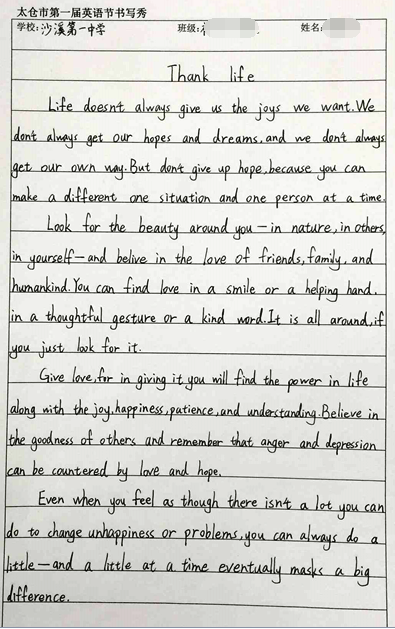 太仓市第一届英语节书写秀
学校:沙溪第一中学 班级: 姓名:
Thank life
Life doesn't always give us the joys we want.We
don't always get our hopes and dreams,and we don't always
get our own way.But don't give up hope,because you can
make a different one situation and one person at a time.
Look for the beauty around you—in nature,in others,
in yourself—and belive in the love of friends,family,and
humankind.You can find love in a smile or a helping hand,
in a thoughtful gesture or a kind word.It is all around,if
you just look for it.
Give love,for in giving it you will find the power in life
along with the joy,happiness,patience,and understanding.Believe in
the goodness of others and remember that anger and depression
can be countered by love and hope.
Even when you feel as though there isn't a lot you can
do to change unhappiness or problems,you can always do a
little—and a little at a time eventually masks a big
difference.